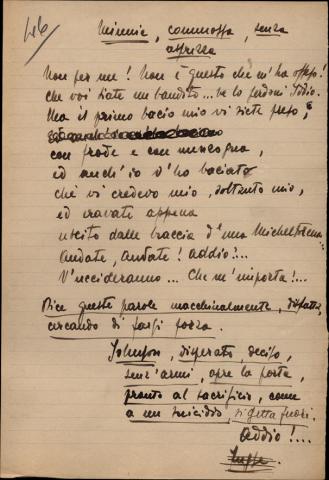 46
Minnie, commossa, senza
asprezza
Non per me! Non è questo che m'ha offeso!
che voi siate un bandito... ve lo perdoni Iddio.
Ma il primo bacio mio vi siete preso,
con frode e con menzogna,
ed anch'io v'ho baciato
chè vi credevo mio, soltanto mio,
ed eravate appena
uscito dalle braccia d'una Micheltorena.
Andate, andate! addio!...
V'uccideranno... Che m'importa!...
Dice queste parole macchinalmente, disfatta,
cercando di farsi forza.
Johnson, disperato, deciso,
senz'armi, apre la porta,
pronto al sacrificio, come
a un suicidio, si getta fuori.
Addio!...